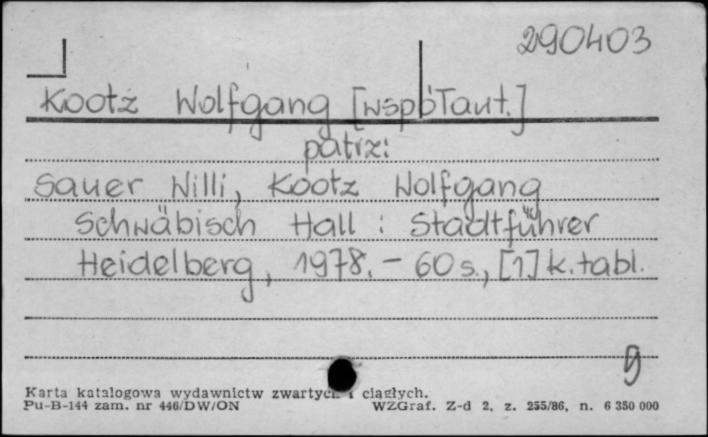 290403
Kootz Wolfgang [współaut.]
patrz:
Sauer Willi, Kootz Wolfgang
Schwäbisch Hall : Stadtführer
Heidelberg, 1978. - 60 s., [1] k. tabl.
Karta katalogowa wydawnictw zwartych i ciągłych.
Pu-B-144 zam. nr 446/DW/ON WZGraf. Z-d 2, z. 255/86, n. 6 350 000